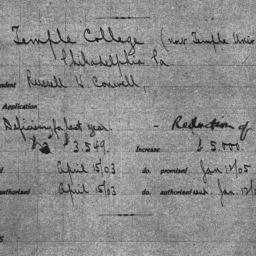 Temple College (now Temple Univ
Philadelphia Pa
ndent Russell H. Conwell,
Application
Deficiency for last year. - Reduction of
$3.549. Increase $5.000
d April 15/03 do. promised Jan 12/05
authorised April 15/03 do. authorised Jan. 12/0